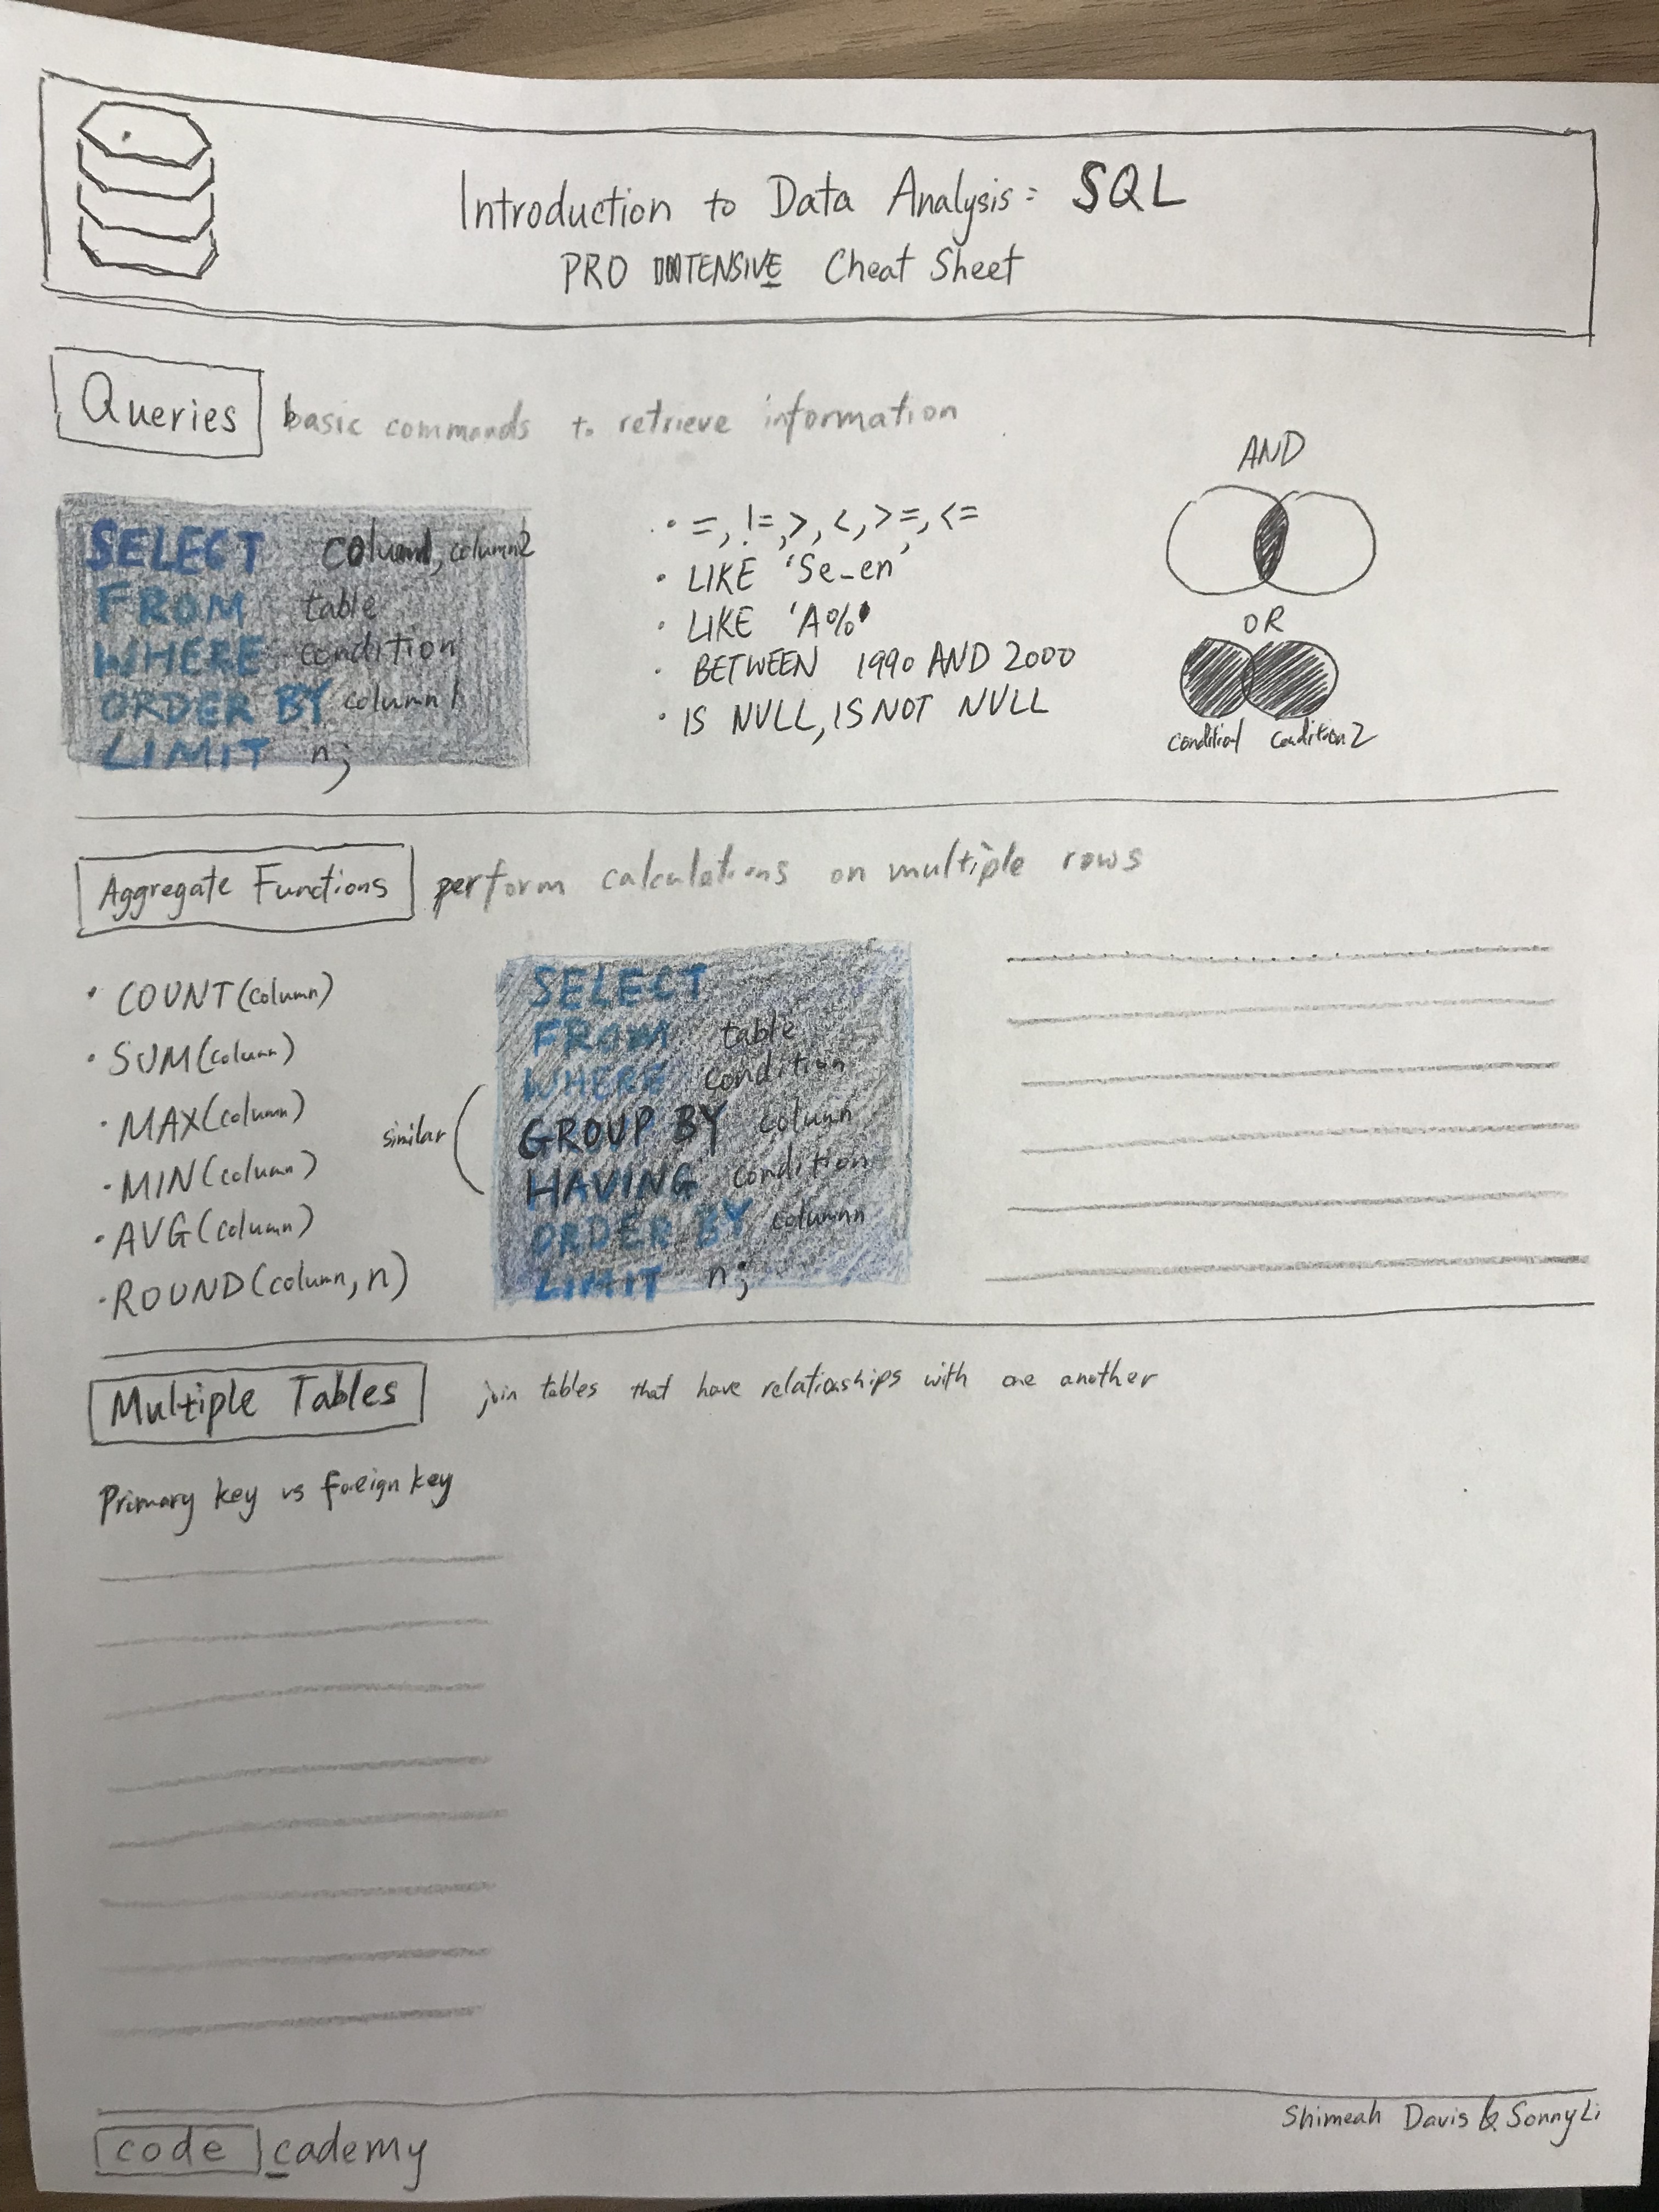 Introduction to Data Analysis: SQL
PRO INTENSIVE Cheat Sheet
Queries
basic commands to retrieve information
SELECT column1, column2
FROM table
WHERE condition
ORDER BY column1
LIMIT n;
• =, !=, >, <, >=, <=
• LIKE 'Se_en'
• LIKE 'A%'
• BETWEEN 1990 AND 2000
• IS NULL, IS NOT NULL
AND
OR
condition1 condition2
Aggregate Functions
perform calculations on multiple rows
• COUNT(column)
• SUM(column)
• MAX(column)
• MIN(column)
• AVG(column)
• ROUND(column, n)
similar
SELECT
FROM table
WHERE condition
GROUP BY column
HAVING condition
ORDER BY column
LIMIT n;
Multiple Tables
join tables that have relationships with one another
Primary key vs foreign key
code cademy
Shimeah Davis & Sonny Li